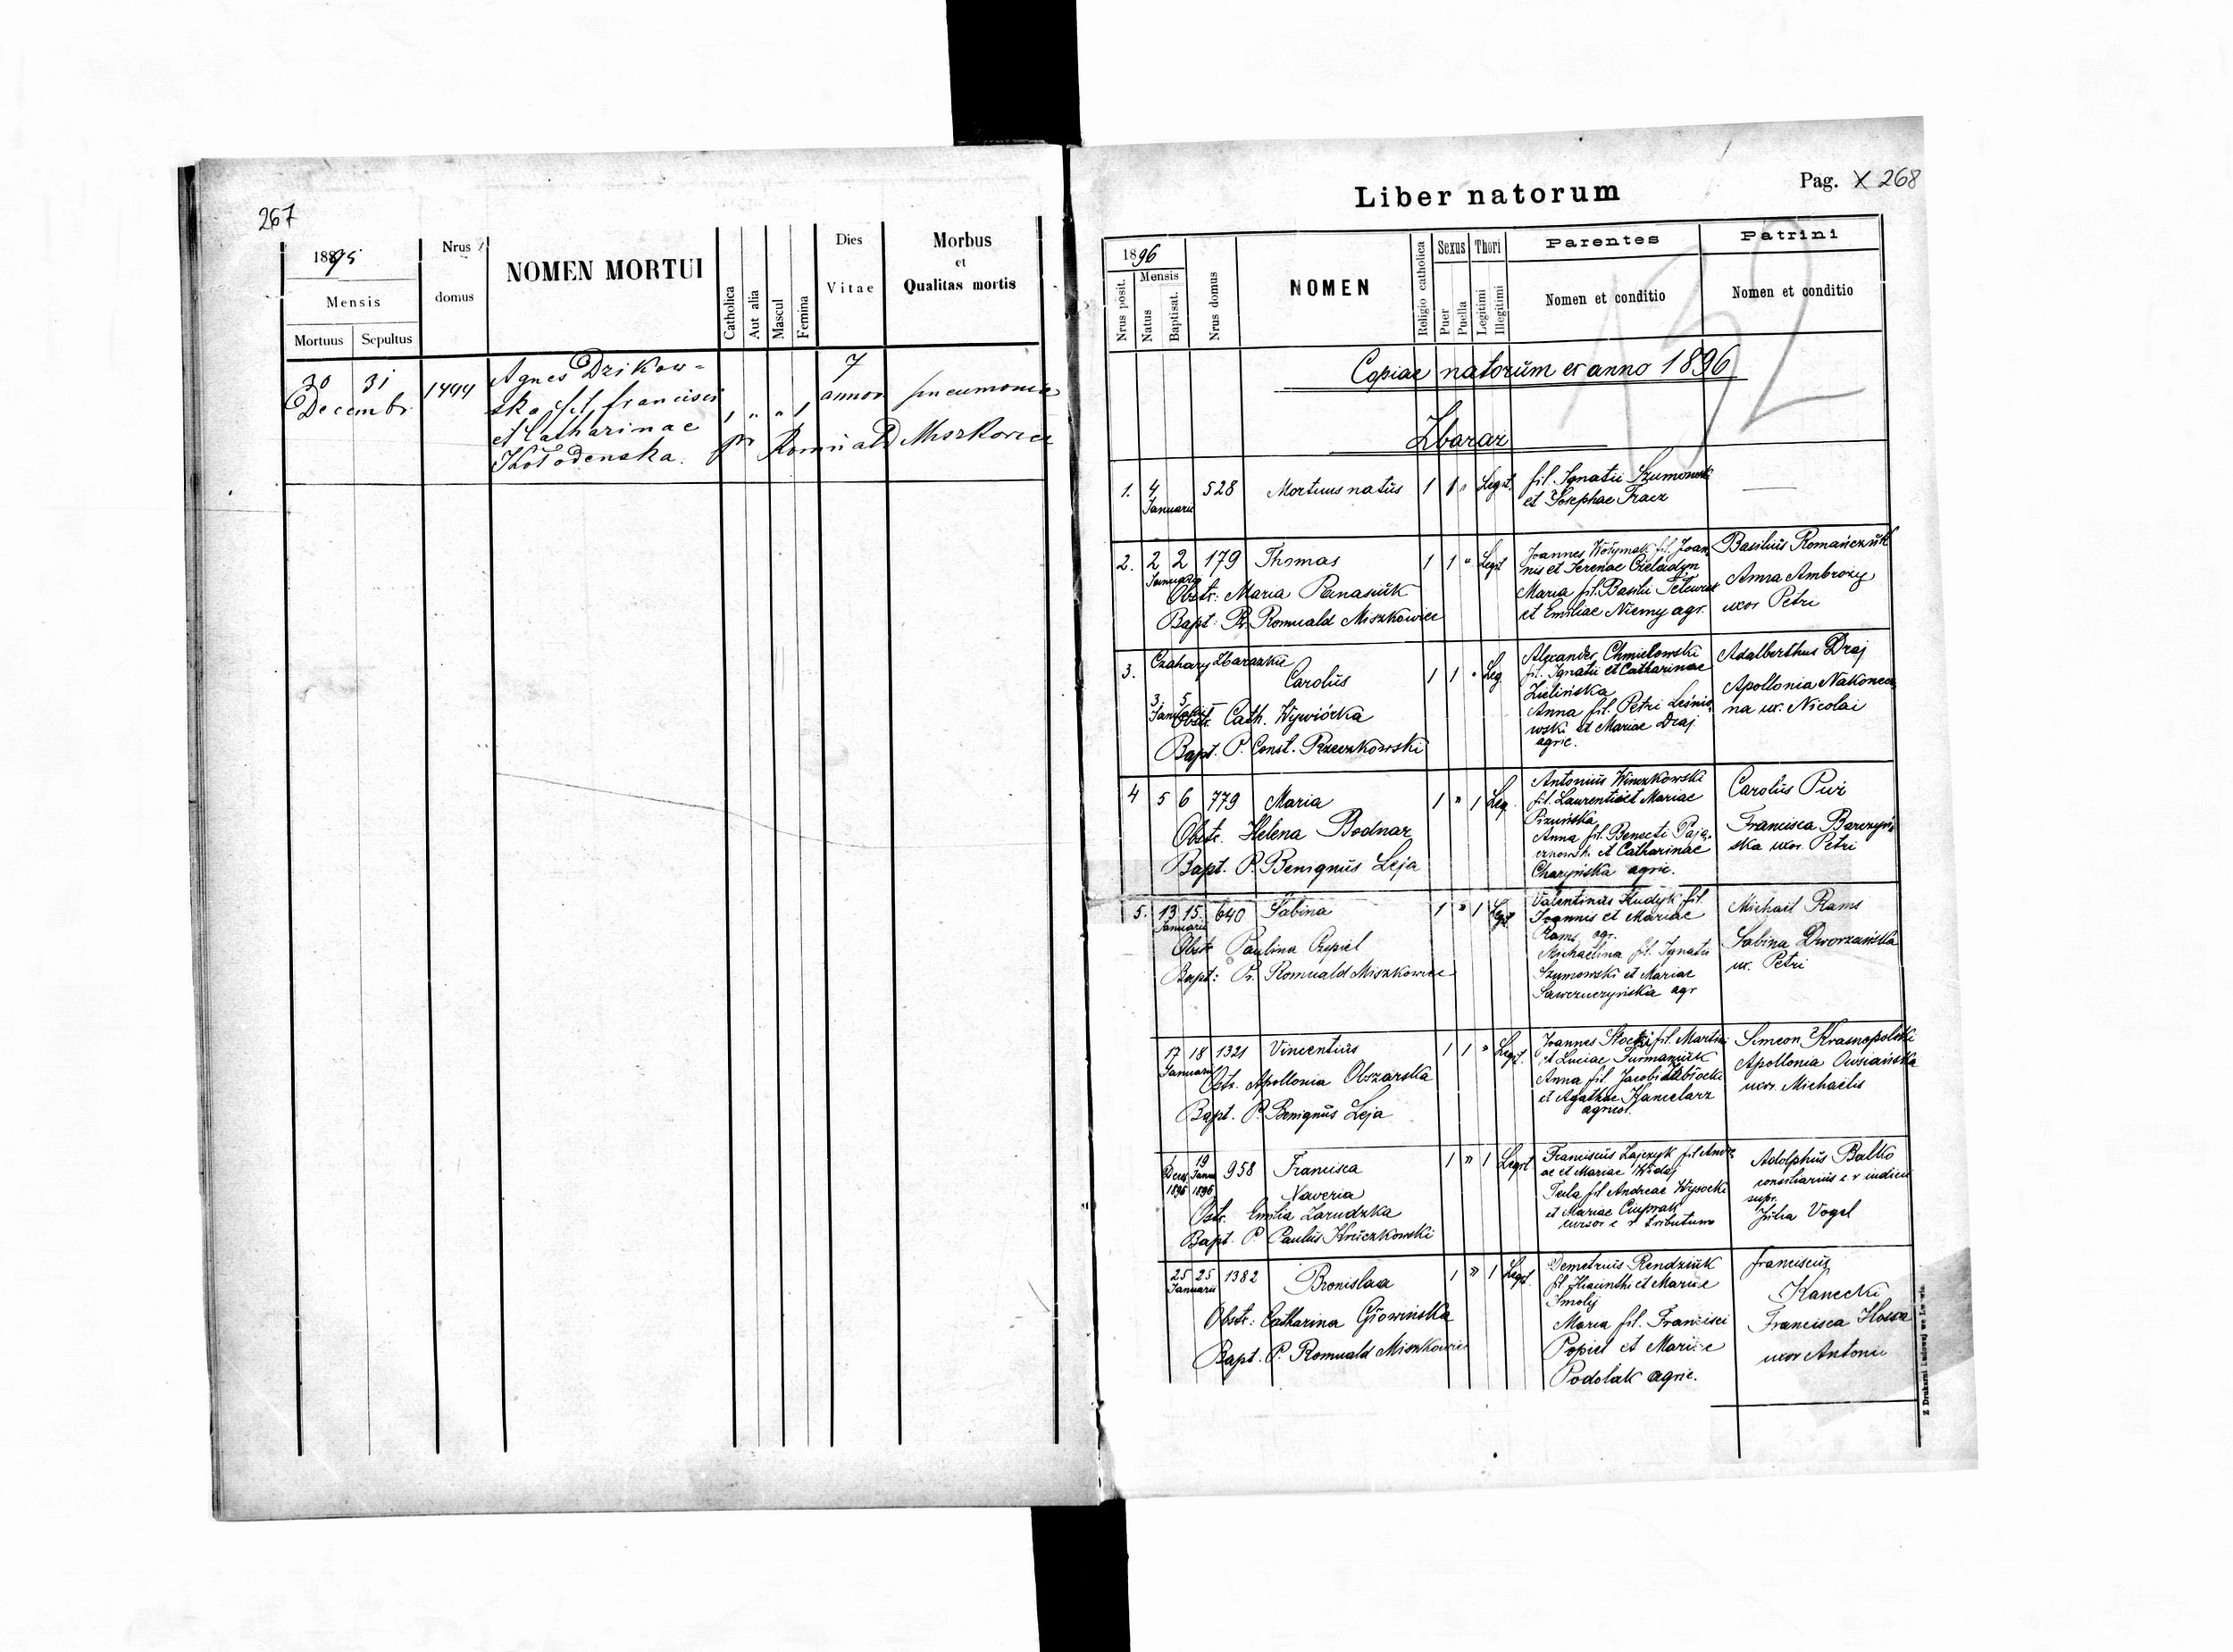 267
1895
Nrus
domus
NOMEN MORTUI
Catholica
Aut alia
Mascul
Femina
Dies
Vitae
Morbus
et
Qualitas mortis
Mensis
Mortuus Sepultus
30 31 1444 Agnes Dzikow- 7
Decembr ska fil. Francisci 1 " " 1 annor pneumonia
et Catharinae pr Romuald Miszkowicz
Kołodenska.
Pag. X 268
Liber natorum
132
1896
Nrus posit.
Mensis
Natus
Baptisat.
Nrus domus
NOMEN
Religio catholica
Sexus
Puer
Puella
Thori
Legitimi
Illegitimi
Parentes
Nomen et conditio
Patrini
Nomen et conditio
Copiae natorum ex anno 1896
Zbaraz
1. 4 528 Mortuus natus 1 1 " Legit. fil. Ignatii Szumowski
Januarii et Josephae Tracz
2. 2 2 179 Thomas 1 1 " Legit
Januarii
Obstr: Maria Panasiuk
Bapt: Pr. Romuald Miszkowicz
Joannes fil. Joan
nis et
Maria fil. Basilii
et Emiliae Niemy agr.
Basilius Romańczuk
Anna Ambrozy
uxor Petri
3. Czahary Zbarazkie
Carolus 1 1 " Leg.
3 5
Januarii
Obstr. Cath. Wywiórka
Bapt. P. Const. Rzeczkowski
Alexander Chmielowski
fil. Ignatii et Catharinae
Zielińska
Anna fil. Petri Leśnio
wski et Mariae Draj
agric.
Adalberthus Draj
Apollonia Nakonecz
na ux. Nicolai
4 5 6 779 Maria 1 " 1 Leg.
Obstr. Helena Bodnar
Bapt. P. Benignus Leja
Antonius Winczkowski
fil. Laurentii et Mariae
Anna fil.
et Catharinae
Charyńska agric.
Carolus Puż
Francisca Barczyń
ska uxor. Petri
5. 13 15. 640 Sabina 1 " 1 Legit
Januarii
Obstr Paulina Czepiel
Bapt: Pr. Romuald Miszkowicz
Valentinus Kudyk fil.
Joannis et Mariae
Rams agr.
Michaelina fil. Ignatii
Szumowski et Mariae
Sawczuczyńska agr
Michail Rams
Sabina Dworzańska
ux. Petri
17 18 1321 Vincentius 1 1 " Legit.
Januarii
Obstr. Apollonia Obszarska
Bapt. P. Benignus Leja
Joannes Stocki fil. Martini
et Luciae Furmaniuk
Anna fil. Jacobi
et Agathae Kancelarz
agricol.
Simeon Krasnopolski
Apollonia Owsiańska
uxor. Michaelis
1 19 958 Francisca 1 " 1 Legit
Decem Januar
1895 1896 Xaveria
Obstr. Emilia Zarudzka
Bapt. P. Paulus Kruczkowski
Franciscus Zajczyk fil Andre
ae et Mariae
Tecla fil Andreae Wysocki
et Mariae
cursor c r tributum
Adolphus Balko
consiliarius c r iudicii
supr.
Julia Vogel
25 25 1382 Bronislaa 1 " 1 Legit.
Januarii
Obstr: Catharina Głowińska
Bapt. P. Romuald Miszkowicz
Demetrius Rendziuk
fil Hiacinthi et Mariae
Smolij
Maria fil. Francisci
Popiel et Mariae
Podolak agric.
Franciscus
Kanecki
Francisca
uxor Antonii
Z Drukarni Ludowej we Lwowie.